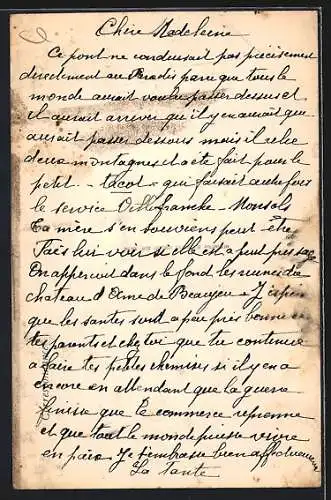 Chère Madeleine
Ce pont ne conduisait pas précisément
directement au Paradis parce que tous le
monde aurait voulu passer dessus et
il aurait arriver qu'il y en aurait que
aurait passer dessous mais il relie
deux montagnes et a été fait pour le
petit - tacot - qui faisait autrefois
le service Villefranche - Monsols
Ta mère s'en souviens peut-être
Fais lui voir si elle est
On apperçoit dans le fond les ruines du
chateau d'Anne de Beaujeu - J'espère
que les santes sont a peu près bonne
tes parents et chez toi que tu continue
a faire tes petites chemises si il y en a
encore en attendant que la guerre
finisse que le commerce reprenne
et que tout le monde puisse vivre
en paix Je t'embrasse bien affectueusement
La Tante